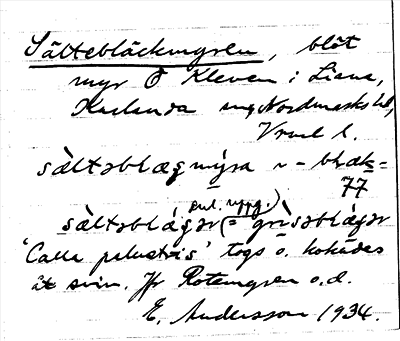 Sältebläckmyren, blöt
myr Ö Kleven i Liane,
Karlanda sn, Nordmarks hd,
Vrml l.
sàltəblægmýra ~ -blæk=
77
enl. uppg.)
sàltəblágər (= grìsəblágər
'Calla palustris' togs o. kokades
åt svin. Jfr Rotemyren o.d.
E. Andersson 1934.